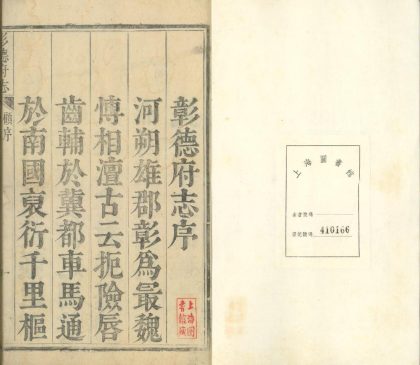 彰德府志序
河朔雄郡彰為最魏
傅相澶古云扼險唇
齒輔於冀都車馬通
於南國袤衍千里樞
彰德府志
顧序
上海圖書館
登記號碼 410166
上海圖
書館藏